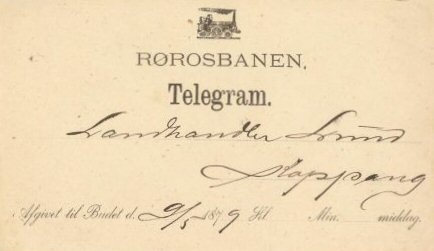 RØROSBANEN.
Telegram.
Landhandler Strund
Koppang
Afgivet til Budet d. 9/5 1879 Kl Min. middag.